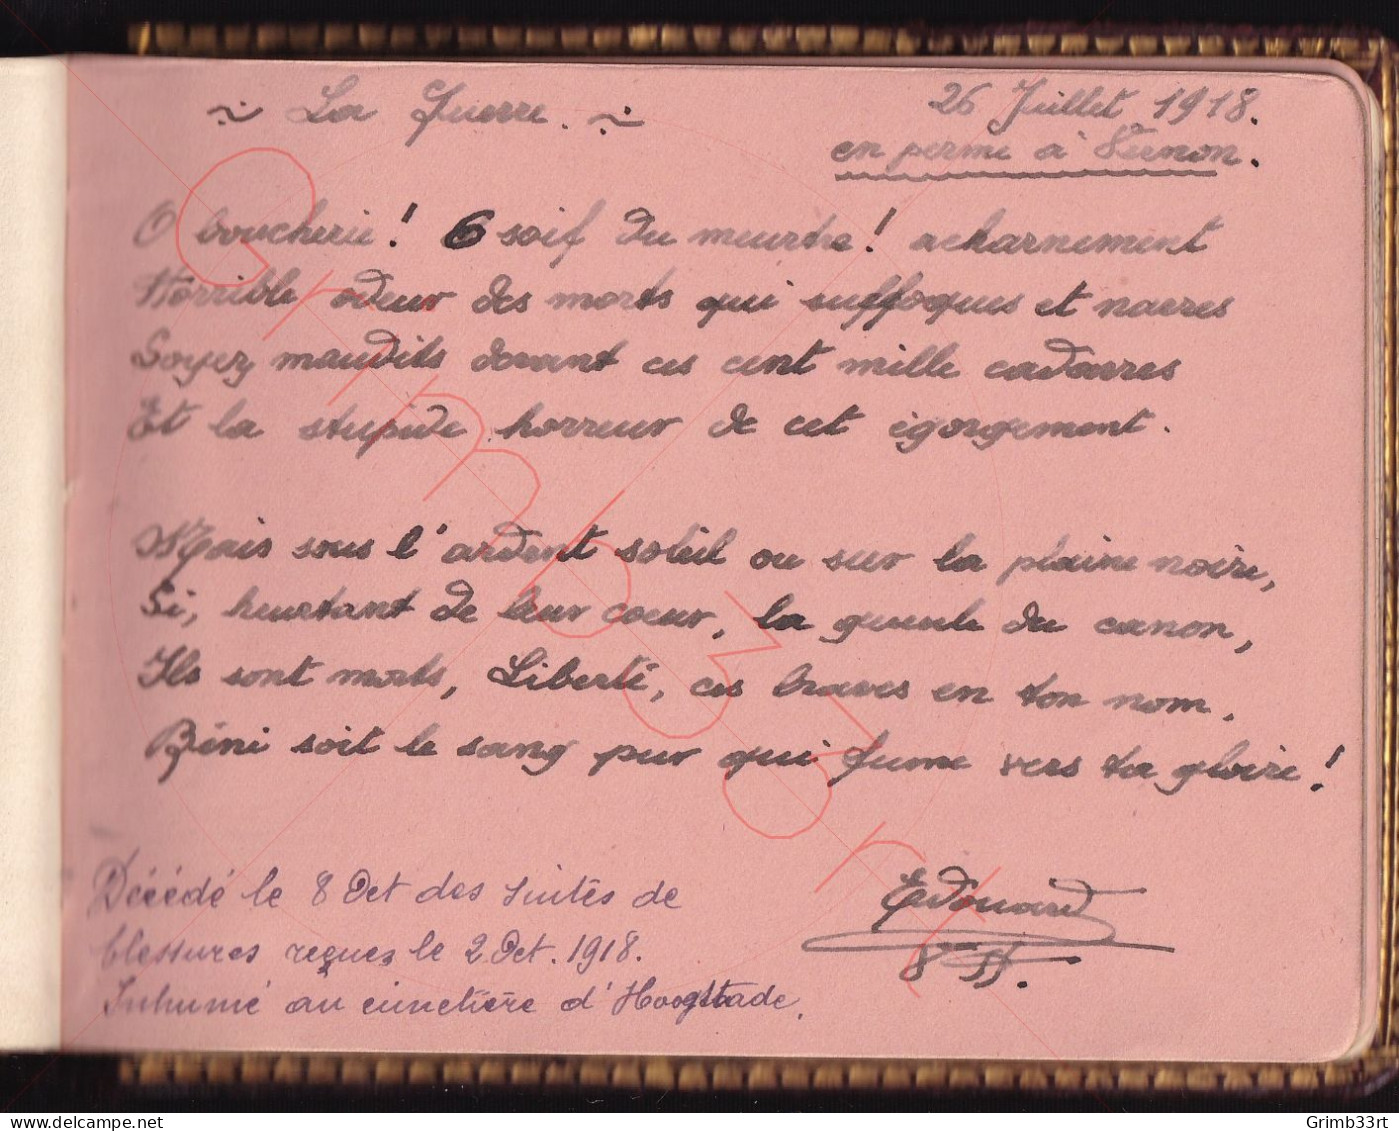 ~ La Guerre. ~
26 Juillet 1918.
en perme à Vernon.
O boucherie! O soif du meurtre! acharnement
Horrible odeur des morts qui suffoques et navres
Soyez maudits devant ces cent mille cadavres
Et la stupide horreur de cet égorgement.
Mais sous l'ardent soleil ou sur la plaine noire,
Si, heurtant de leur cœur, la gueule du canon,
Ils sont morts, Liberté, ces braves en ton nom.
Béni soit le sang pur qui fume vers ta gloire!
Edouard
Décédé le 8 Oct des suites de
blessures reçues le 2 Oct. 1918.
Inhumé au cimetière d'Hoogstade.
Grimb33rt
delcampe.net
Grimb33rt